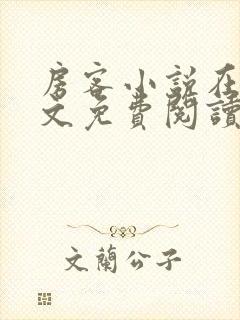 房客小说在
文免費閱讀
文蘭公子